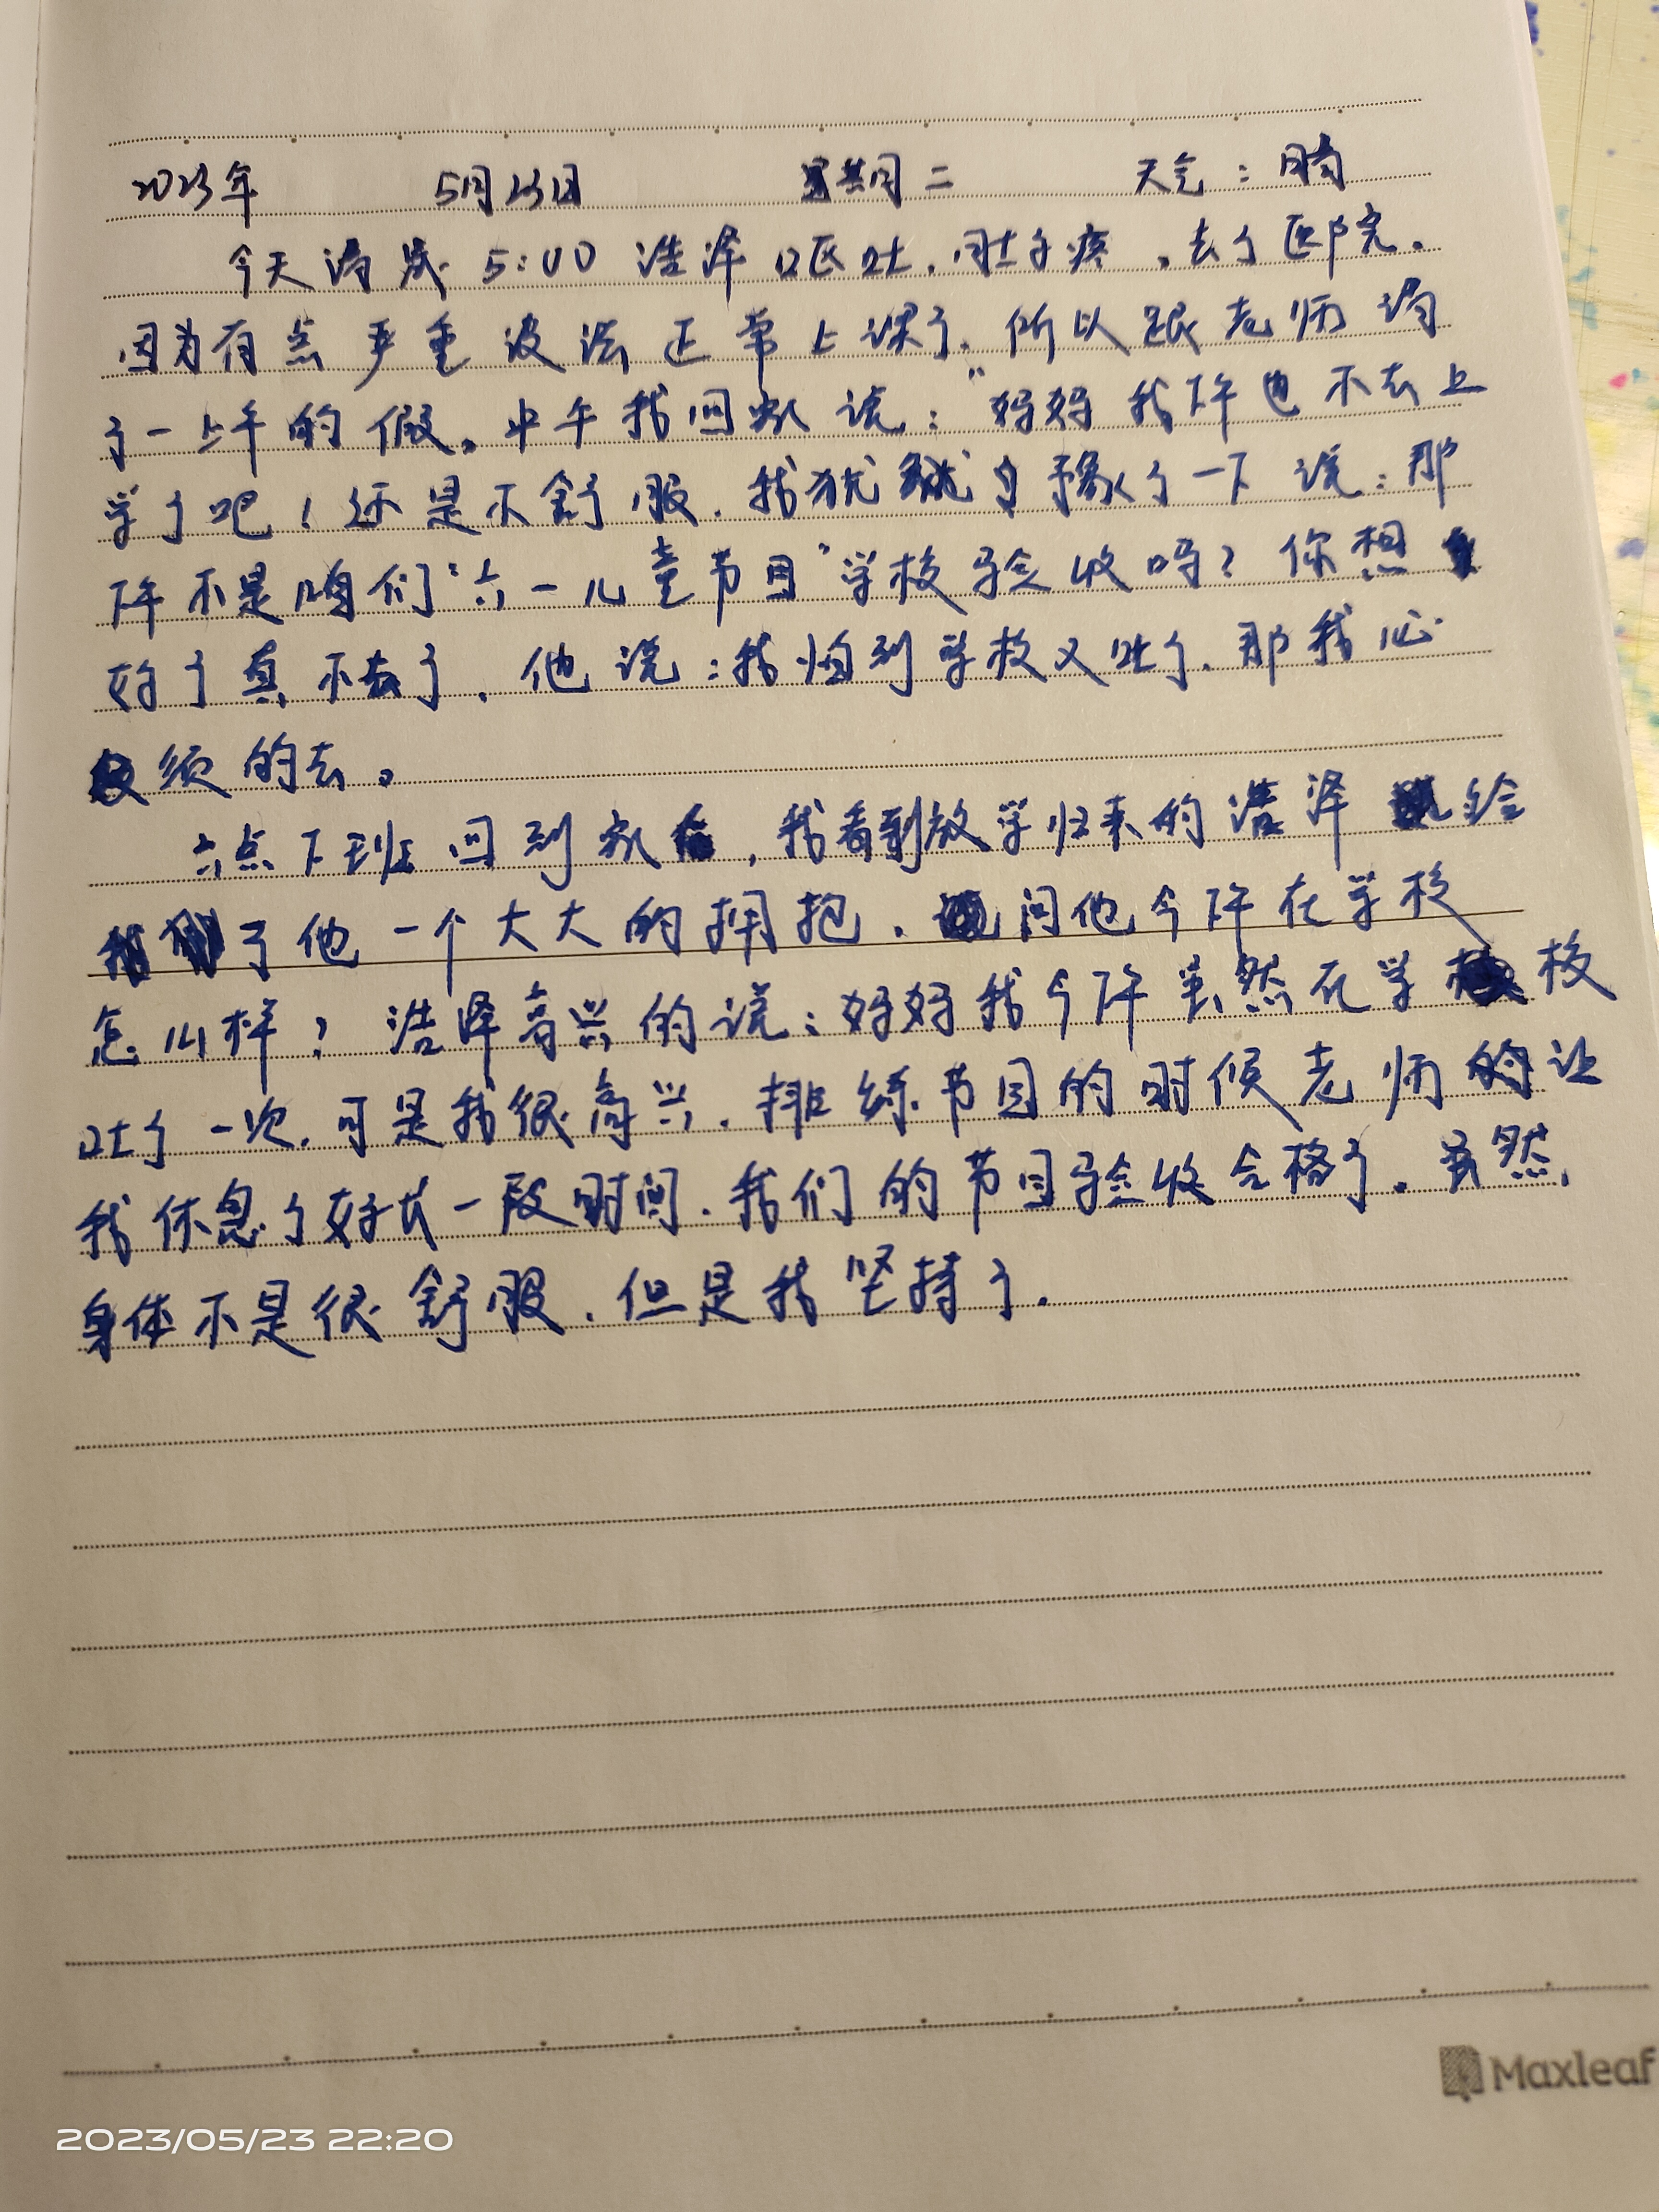 2023年 5月23日 星期二 天气：晴
今天清晨5:00浩泽呕吐.肚子疼.去了医院.
因为有点严重没法正常上课了.所以跟老师请
了一上午的假。中午我回家说："妈妈我下午也不去上
学了吧！还是不舒服.我犹豫了一下说：那
下午不是咱们"六一儿童节目"学校验收吗？你想
好了真不去了.他说：我怕到学校又吐了.那我心
须的去。
六点下班回到家，我看到放学归来的浩泽给
了他一个大大的拥抱.问他今下午在学校
怎么样？浩泽高兴的说：妈妈我今下午虽然在学校
吐了一次.可是我很高兴.排练节目的时候老师的让
我休息了好长一段时间.我们的节目验收合格了.虽然
身体不是很舒服.但是我坚持了.
Maxleaf
2023/05/23 22:20